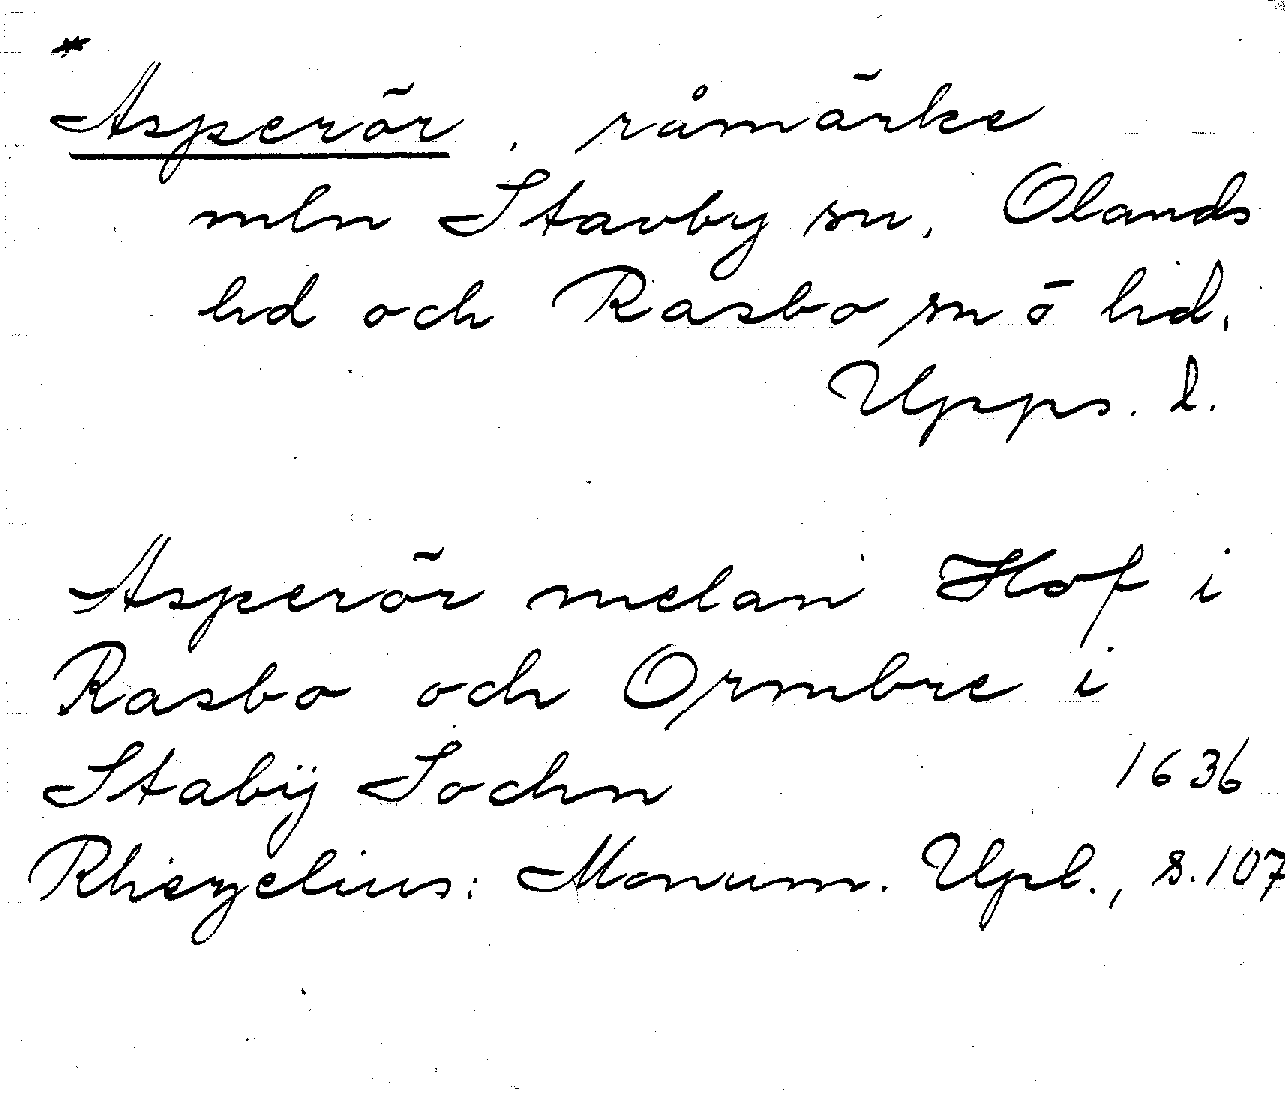 *
Asperör, råmärke
mln Stavby sn, Olands
hd och Rasbo sn o hd,
Upps. l.
Asperör melan Hof i
Rasbo och Ormbre i
Stabÿ Sochn 1636
Rhezelius: Monum. Upl., s. 107